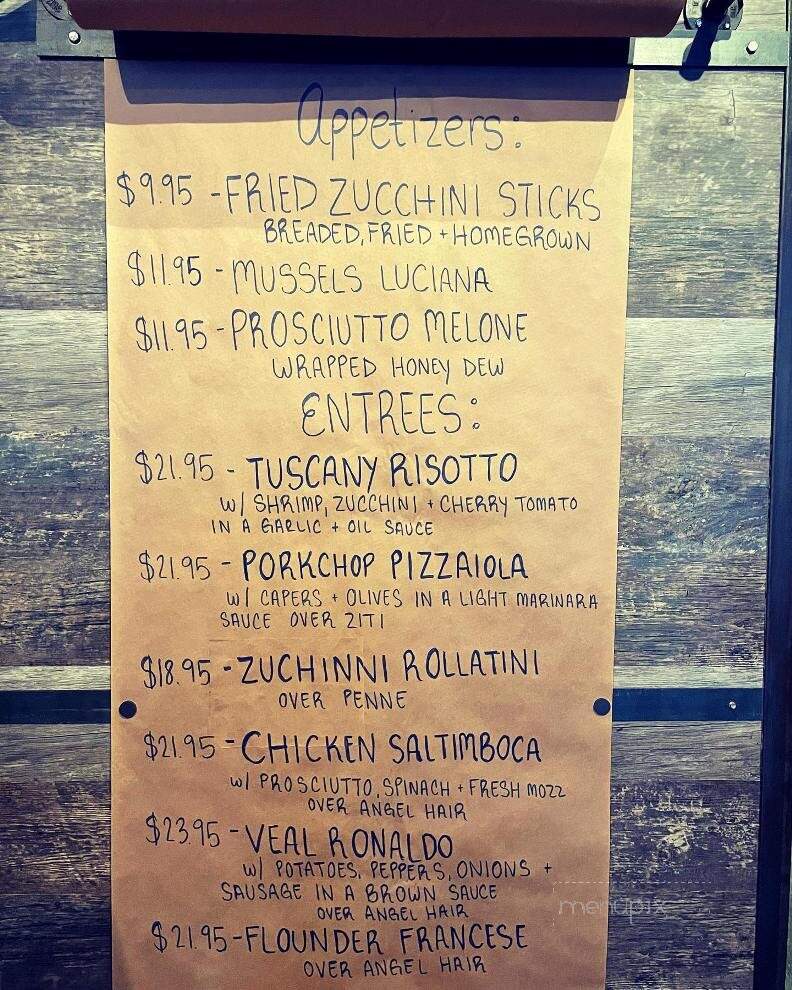 Appetizers:
$9.95 - FRIED ZUCCHINI STICKS
BREADED, FRIED + HOMEGROWN
$11.95 - MUSSELS LUCIANA
$11.95 - PROSCIUTTO MELONE
WRAPPED HONEY DEW
ENTREES:
$21.95 - TUSCANY RISOTTO
W/ SHRIMP, ZUCCHINI + CHERRY TOMATO
IN A GARLIC + OIL SAUCE
$21.95 - PORKCHOP PIZZAIOLA
W/ CAPERS + OLIVES IN A LIGHT MARINARA
SAUCE OVER ZITI
$18.95 - ZUCHINNI ROLLATINI
OVER PENNE
$21.95 - CHICKEN SALTIMBOCA
W/ PROSCIUTTO, SPINACH + FRESH MOZZ
OVER ANGEL HAIR
$23.95 - VEAL RONALDO
W/ POTATOES, PEPPERS, ONIONS +
SAUSAGE IN A BROWN SAUCE
OVER ANGEL HAIR
menupix
$21.95 - FLOUNDER FRANCESE
OVER ANGEL HAIR